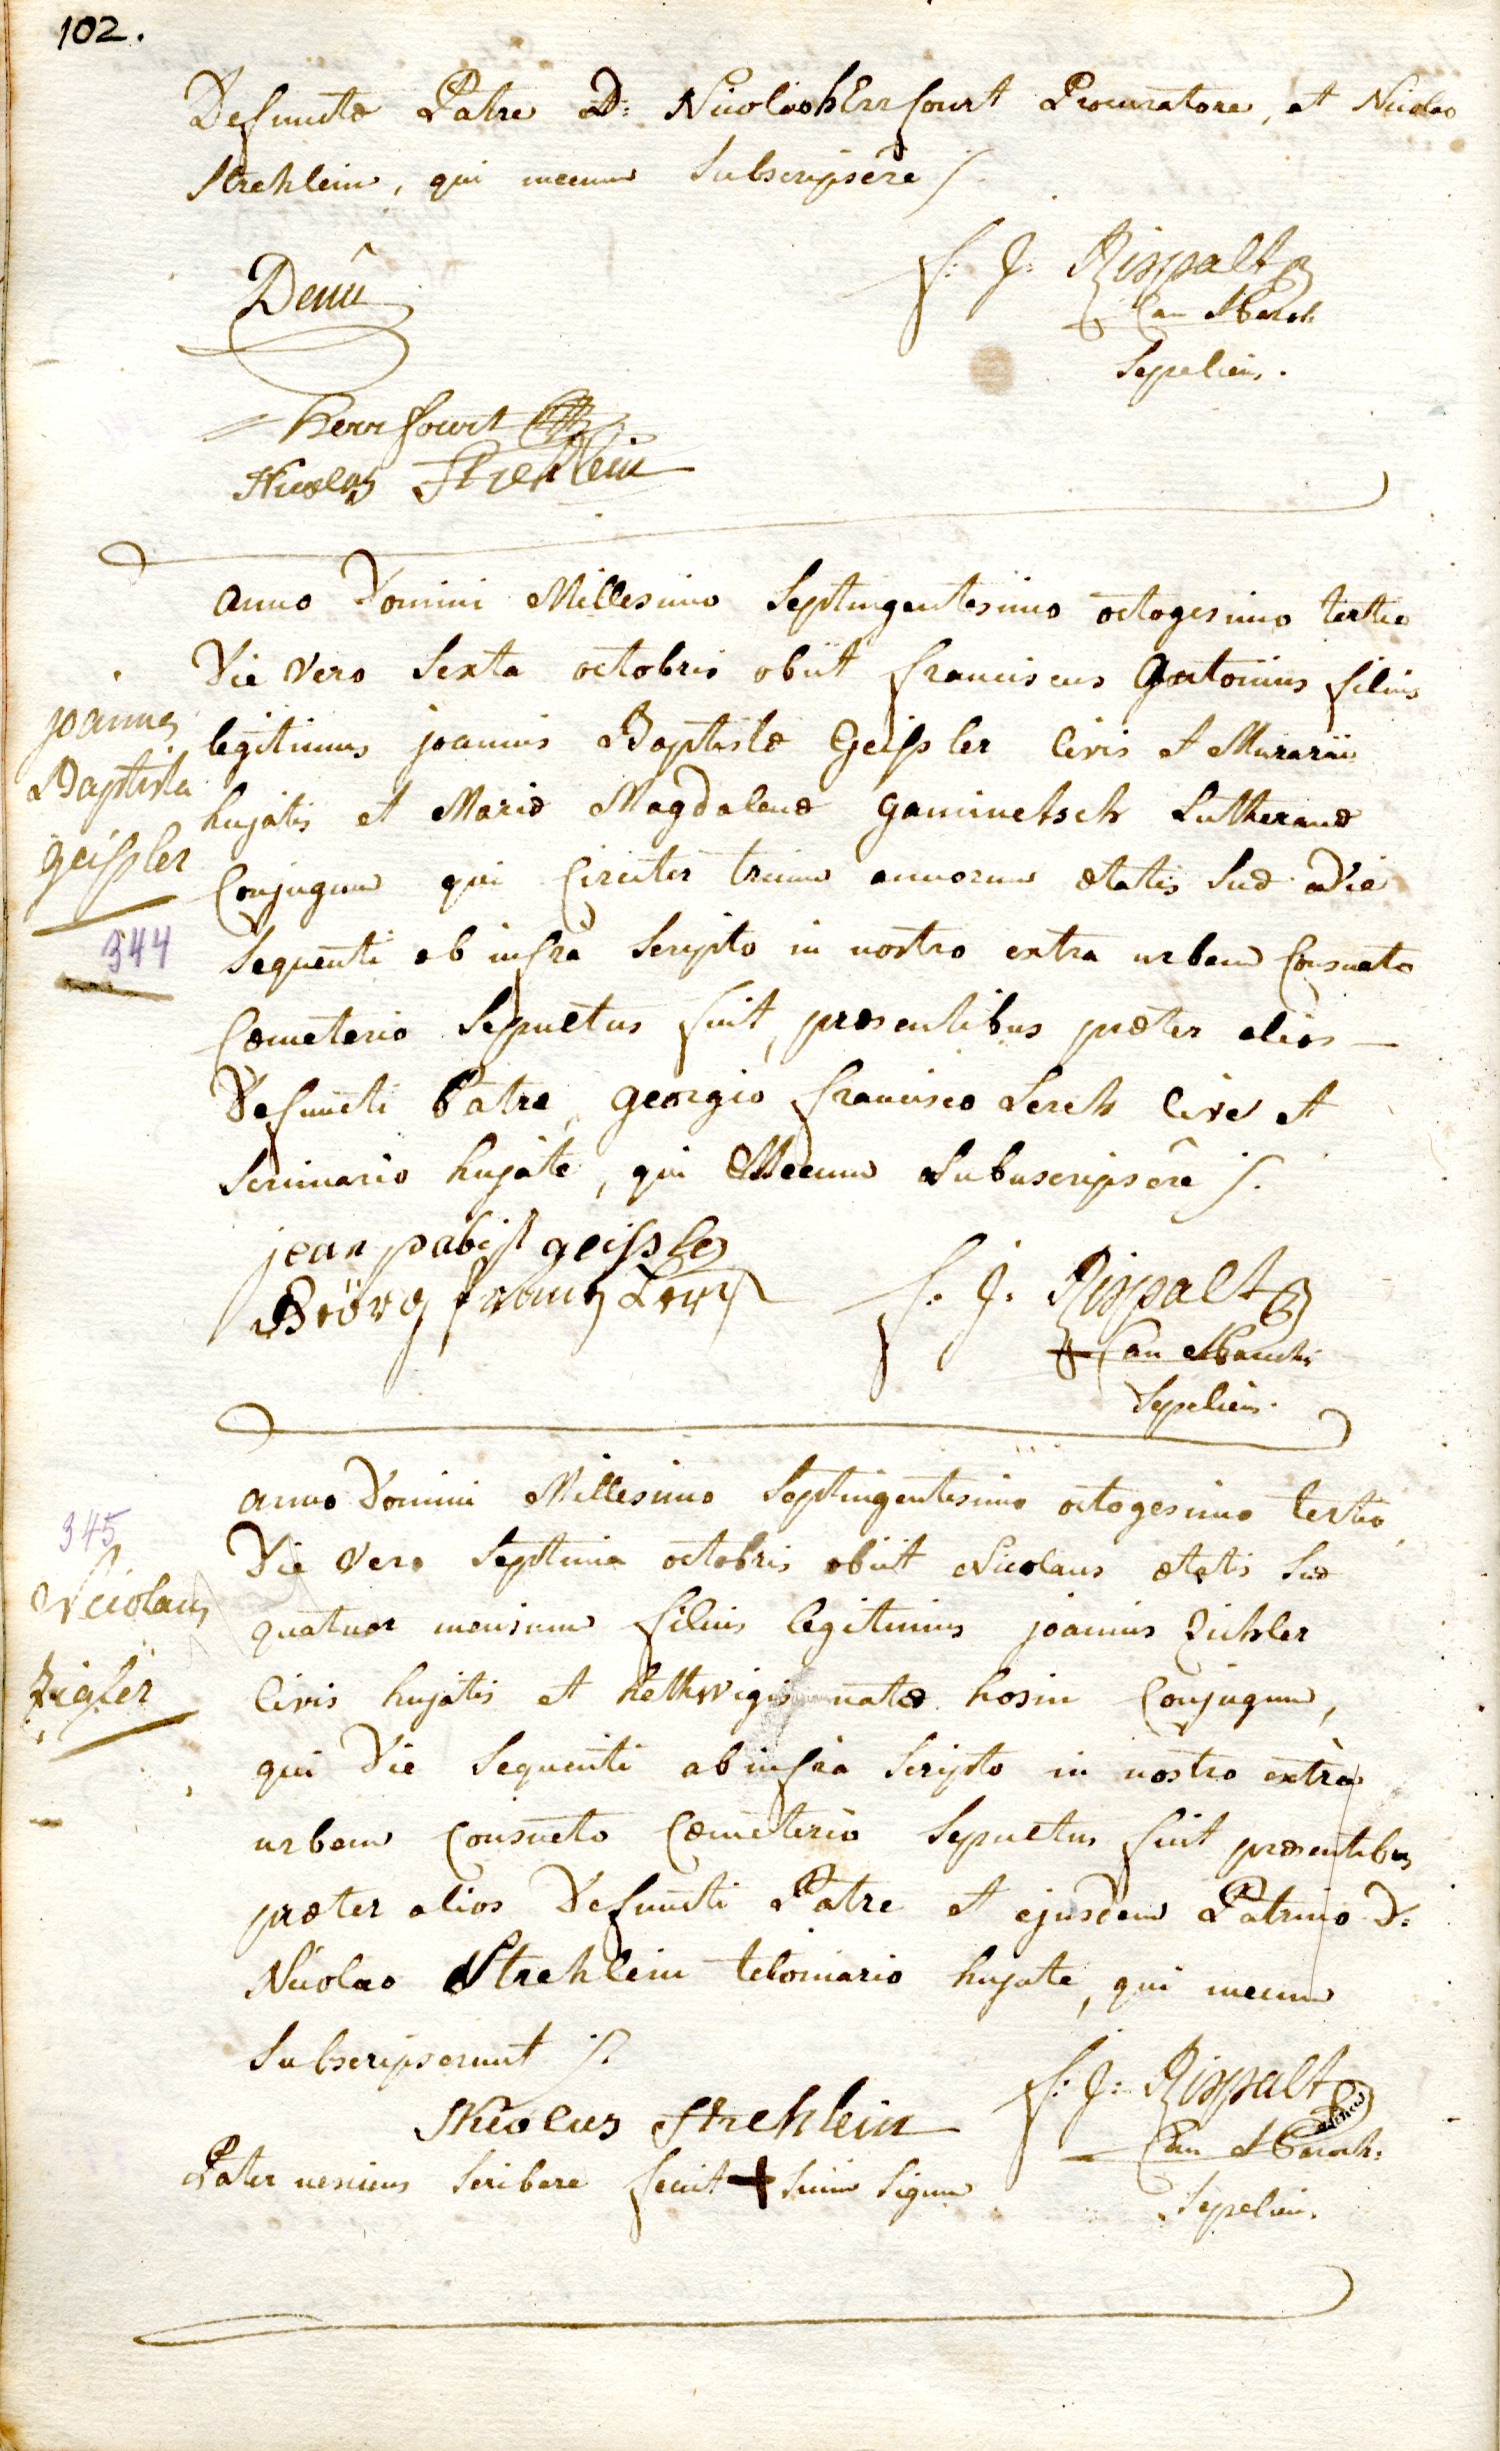 102.
Defunctæ Patre D: Nicolao hErrfourt Procuratore, et Nicolao
Strehlein, qui mecum Subscripsêre /.
f: J: Rispalt
Can Paroch
Sepeliens.
herrfourt
Nicolas Strehlein
anno Domini Millesimo Septingentesimo octogesimo tertio
Die Vero Sexta octobris obiit franciscus antonius filius
legitimus joannis Baptistæ Geissler Civis et Murarii
hujatis et Mariæ Magdalenæ gaminetsch Lutheranæ
Conjugum qui Circiter trium annorum ætatis Suæ Die
Sequenti ab infra Scripto in nostro extra urbem Consueto
Cœmeterio Sepultus fuit, præsentibus præter alios
Defuncti Patre, georgio francisco Lerch Cive et
Scriniario hujate, qui Mecum Subuscripsêre /.
joannes
Baptista
geissler
344
jean pabist geissler
f. J. Rispalt
Can Paroch
Sepeliens.
anno Domini Millesimo Septingentesimo octogesimo tertio
Die Vero Septima octobris obiit Nicolaus ætatis Suæ
quatuor mensium filius legitimus joannis Zichler
Civis hujatis et hethwigis natæ hosin Conjugum,
qui Die Sequenti ab infra Scripto in nostro extra
urbem Consueto Cœmeterio Sepultus fuit præsentibus
præter alios Defuncti Patre et ejusdem Patrino D:
Nicolao Strehlein teloniario hujate, qui mecum
Subscripserunt /.
345
Nicolaus
Zigler
f: J: Rispalt
Can Paroch:
Sepeliens.
Nicolas Strehlein
Pater nescius Scribere fecit + Suum Signum